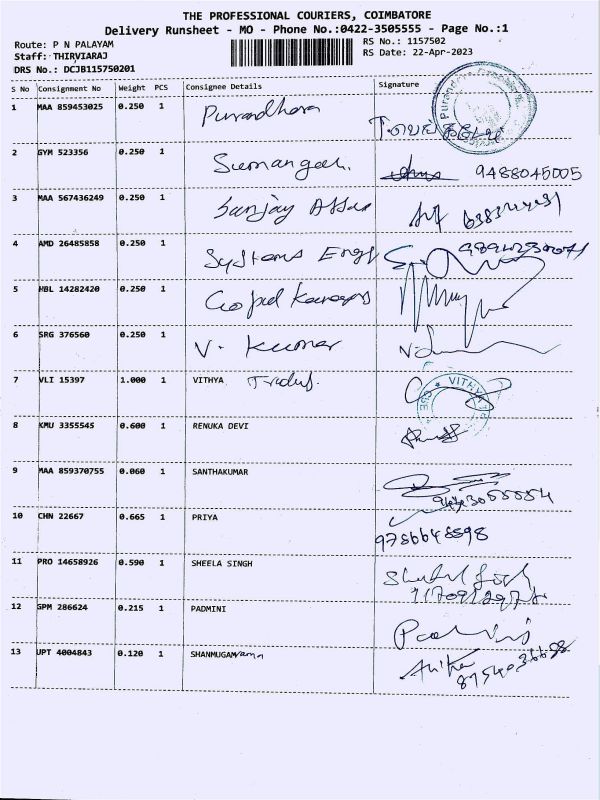 THE PROFESSIONAL COURIERS, COIMBATORE
Delivery Runsheet - MO - Phone No.:0422-3505555 - Page No.:1
Route: P N PALAYAM RS No.: 1157502
Staff: THIRVIARAJ RS Date: 22-Apr-2023
DRS No.: DCJB115750201
S No Consignment No Weight PCS Consignee Details Signature
1 MAA 859453025 0.250 1 Purandhara
2 GYM 523356 0.250 1 Sumangali 9488045005
3 MAA 567436249 0.250 1 Sanjay
4 AMD 26485858 0.250 1 Systems Engg
5 HBL 14282420 0.250 1 Gopal
6 SRG 376560 0.250 1 V. Kumar
7 VLI 15397 1.000 1 VITHYA VITHYA
8 KMU 3355545 0.600 1 RENUKA DEVI
9 MAA 859370755 0.060 1 SANTHAKUMAR
10 CHN 22667 0.665 1 PRIYA 9786648898
11 PRO 14658926 0.590 1 SHEELA SINGH
12 GPM 286624 0.215 1 PADMINI
13 UPT 4004843 0.120 1 SHANMUGAM Anitha